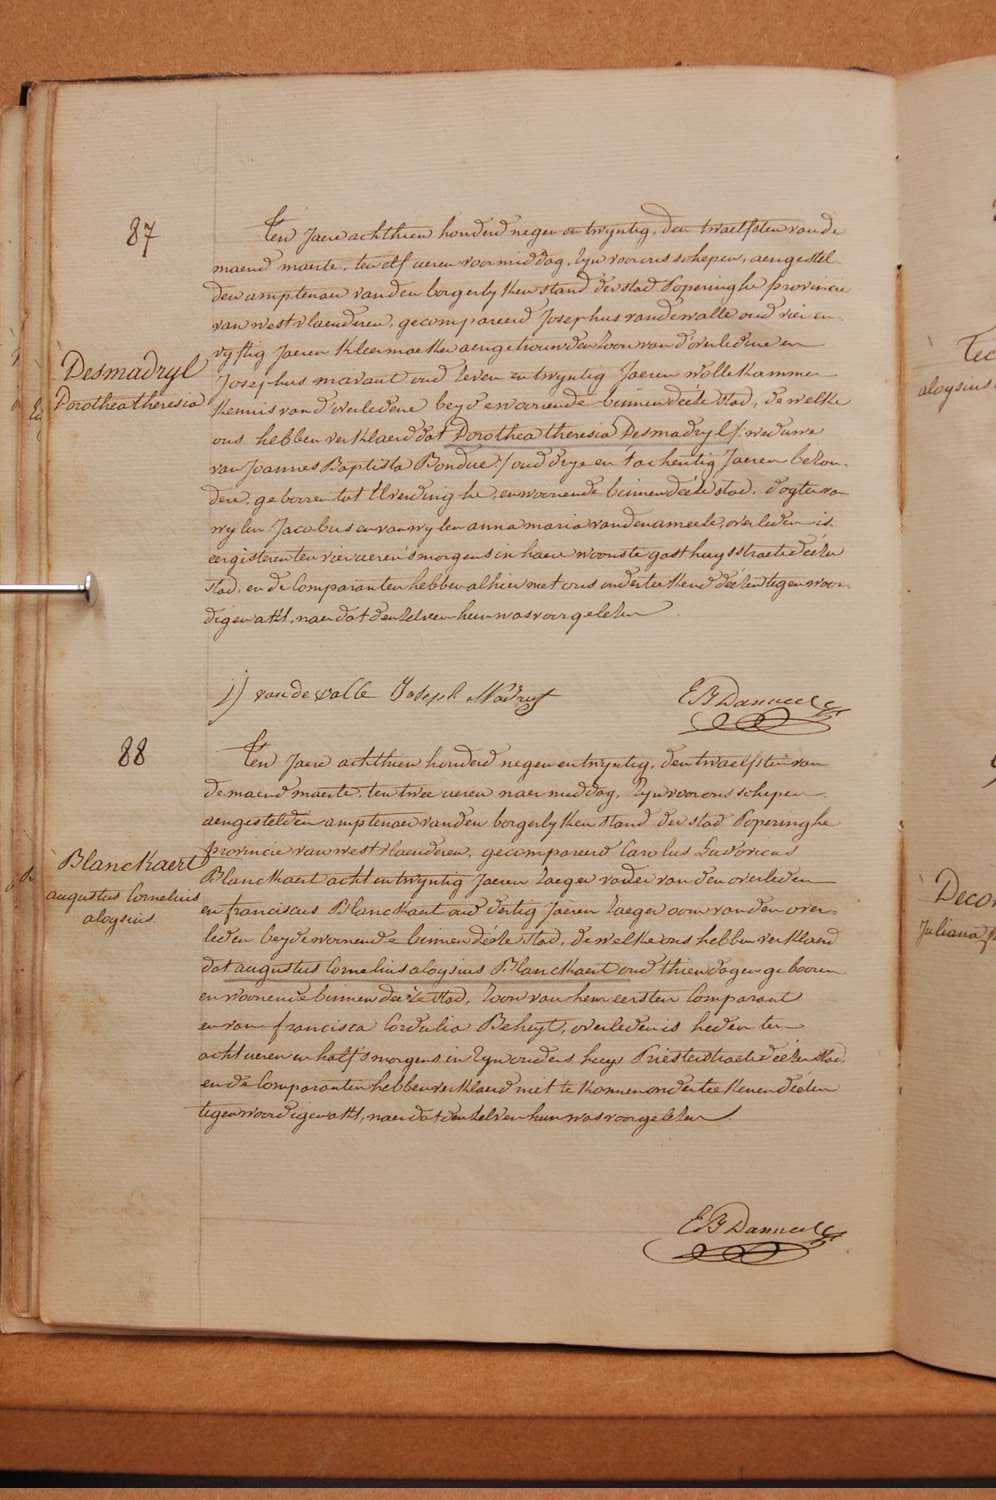 87
Desmadryl
Dorothea theresia
Ten Jaere achthien honderd negen en twyntig, den twaelfsten van de
maend maerte, ten elf ueren voormiddag, Zyn voor ons schepen, aengestel-
den amptenaer van den borgerlyken stand der stad Poperinghe provincie
van westvlaenderen, gecompareerd Josephus vandewalle oud vier en
vyftig Jaeren Kleermaeker aengetrouwden Zoon van d'overledene en
Josephus mavaut oud Zeven en twyntig Jaeren wollekammer
Kennis van d'overledene beyde woonende binnen deéze stad, de welke
ons hebben verklaerd dat Dorothea theresia Desmadryl /: weduwe
van Joannes Baptista Bondue :/ oud drye en tachentig Jaeren bezon-
dere, gebooren tot Elverdinghe, en woonende binnen deéze stad, dogter van
wylen Jacobus en van wylen anna maria vandenameele, overleden is
eergisteren ten vier ueren 's morgens in haere woonste gasthuysstraete deézer
stad, en de Comparanten hebben alhier met ons onderteekend deézen tegenwoor-
digen akt, naer dat den zelven hun was voorgelezen
J) van de walle Joseph
E B Danneel
88
Blanckaert
augustus Cornelius
aloysius
Ten Jaere achthien honderd negen en twyntig, den twaelfsten van
de maend maerte, ten twee ueren naer middag, Zyn voor ons schepen
aengestelden amptenaer van den borgerlyken stand der stad Poperinghe
provincie van westvlaenderen, gecompareerd Carolus Ludovicus
Blanckaert acht en twyntig Jaeren Zaeger vader van den overleden
en franciscus Blanckaert oud dertig Jaeren Zaeger oom van den over-
leden beyde woonende binnen deéze stad, de welke ons hebben verklaerd
dat augustus Cornelius aloysius Blanckaert oud thien dagen gebooren
en woonende binnen deéze stad, Zoon van hem eersten Comparant
en van francisca Cordulia Beheyt, overleden is heden ten
acht ueren en half 's morgens in Zyn ouders huys Priesterstraete deézer stad
en de Comparanten hebben verklaerd niet te konnen onderteekenen deézen
tegenwoordigen akt, naer dat den zelven hun was voorgelezen
E B Danneel
aloysius
Juliana